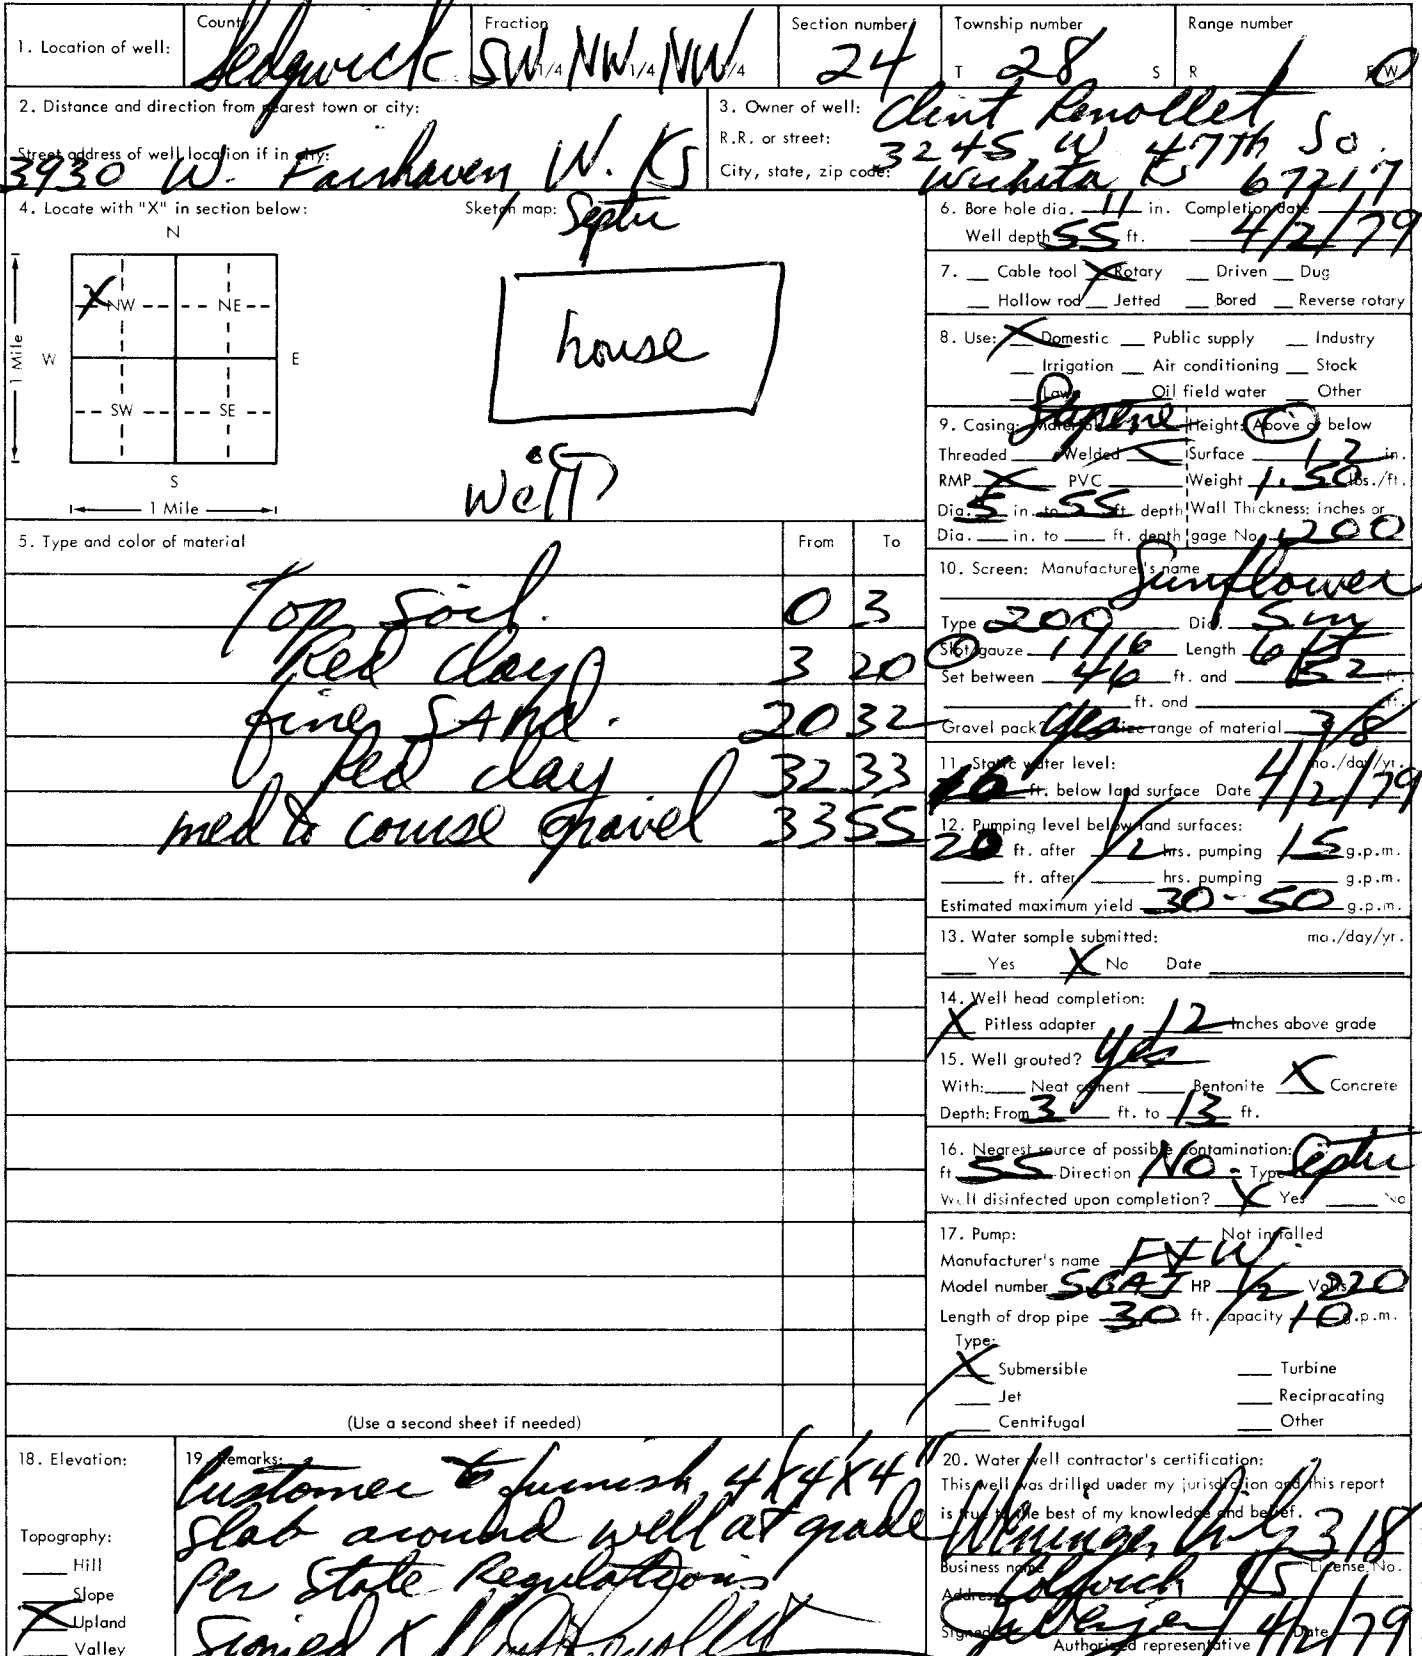 1. Location of well: County Sedgwick Fraction SW 1/4 NW 1/4 NW 1/4 Section number 24 Township number T 28 S Range number R 1 E/W
2. Distance and direction from nearest town or city:
Street address of well location if in city:
3930 W. Fairhaven W. Ks
3. Owner of well: Clint Renollet
R.R. or street: 3245 W 47th So.
City, state, zip code: Wichita Ks 67217
4. Locate with "X" in section below:
N
NW NE
W E
SW SE
S
1 Mile
1 Mile
Sketch map: Septic
house
Well
5. Type and color of material From To
Top Soil. 0 3
Red clay 3 20
fine SAnd. 20 32
Red clay 32 33
med to course gravel 33 55
(Use a second sheet if needed)
6. Bore hole dia. 11 in. Completion date
Well depth 55 ft. 4/2/79
7. Cable tool X Rotary Driven Dug
Hollow rod Jetted Bored Reverse rotary
8. Use: X Domestic Public supply Industry
Irrigation Air conditioning Stock
Lawn Oil field water Other
9. Casing: Material Height: Above or below
Threaded Welded Surface 12 in.
RMP X PVC Weight 1.50 lbs./ft.
Dia. 5 in. to 55 ft. depth Wall Thickness: inches or
Dia. in. to ft. depth gage No. .200
10. Screen: Manufacturer's name
Sunflower
Type 200 Dia. 5
Slot/gauze 1/16 Length 6 ft
Set between 46 ft. and 52 ft.
ft. and ft.
Gravel pack? yes Size range of material 3/8
11. Static water level: mo./day/yr.
16 ft. below land surface Date 4/2/79
12. Pumping level below land surfaces:
20 ft. after 1/2 hrs. pumping 15 g.p.m.
ft. after hrs. pumping g.p.m.
Estimated maximum yield 30-50 g.p.m.
13. Water sample submitted: mo./day/yr.
Yes X No Date
14. Well head completion:
X Pitless adapter 12 Inches above grade
15. Well grouted? yes
With: Neat cement Bentonite X Concrete
Depth: From 3 ft. to 13 ft.
16. Nearest source of possible contamination:
ft. 55 Direction NO. Type Septic
Well disinfected upon completion? X Yes No
17. Pump: Not installed
Manufacturer's name F & W.
Model number HP 1/2 Volts 220
Length of drop pipe 30 ft. capacity 10 g.p.m.
Type:
X Submersible Turbine
Jet Reciprocating
Centrifugal Other
18. Elevation:
Topography:
Hill
Slope
X Upland
Valley
19. Remarks:
Customer to furnish 4X4X4"
slab around well at grade
Per State Regulations
Signed X Clint Renollett
20. Water well contractor's certification:
This well was drilled under my jurisdiction and this report
is true to the best of my knowledge and belief.
318
Business name License No.
Address Colwich KS
Signed Date 4/2/79
Authorized representative